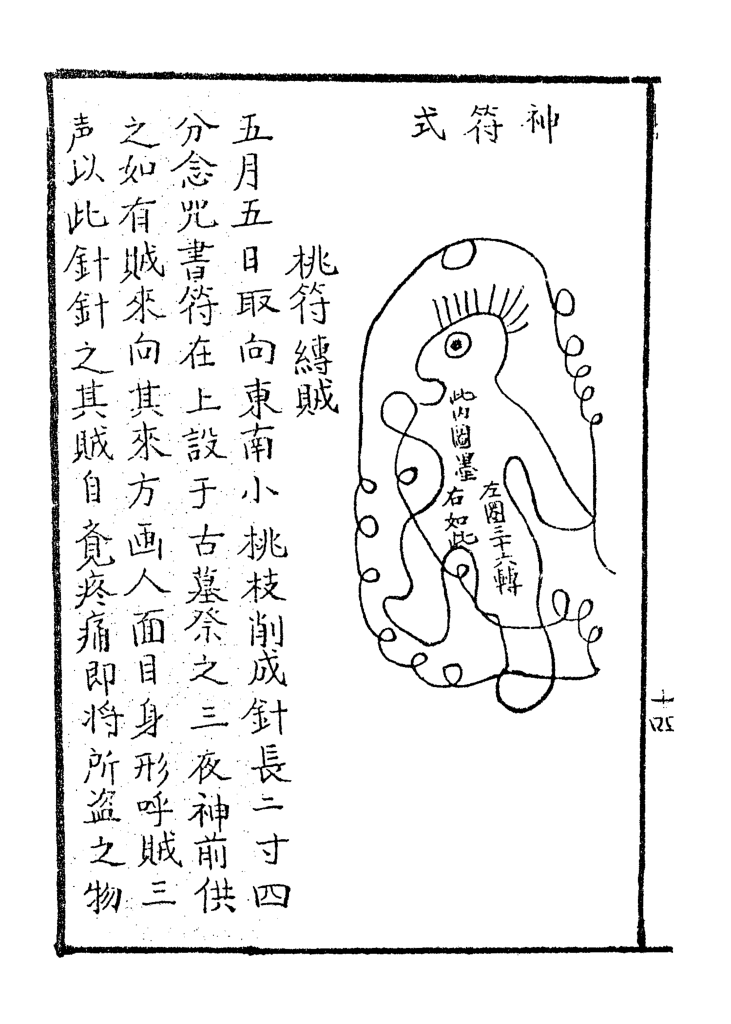 神符式
此內圖墨
右如此
左圈三十六轉
桃符縛賊
五月五日取向東南小桃枝削成針長二寸四
分念咒書符在上設于古墓祭之三夜神前供
之如有賊來向其來方画人面目身形呼賊三
声以此針針之其賊自覓疼痛即将所盗之物
十四